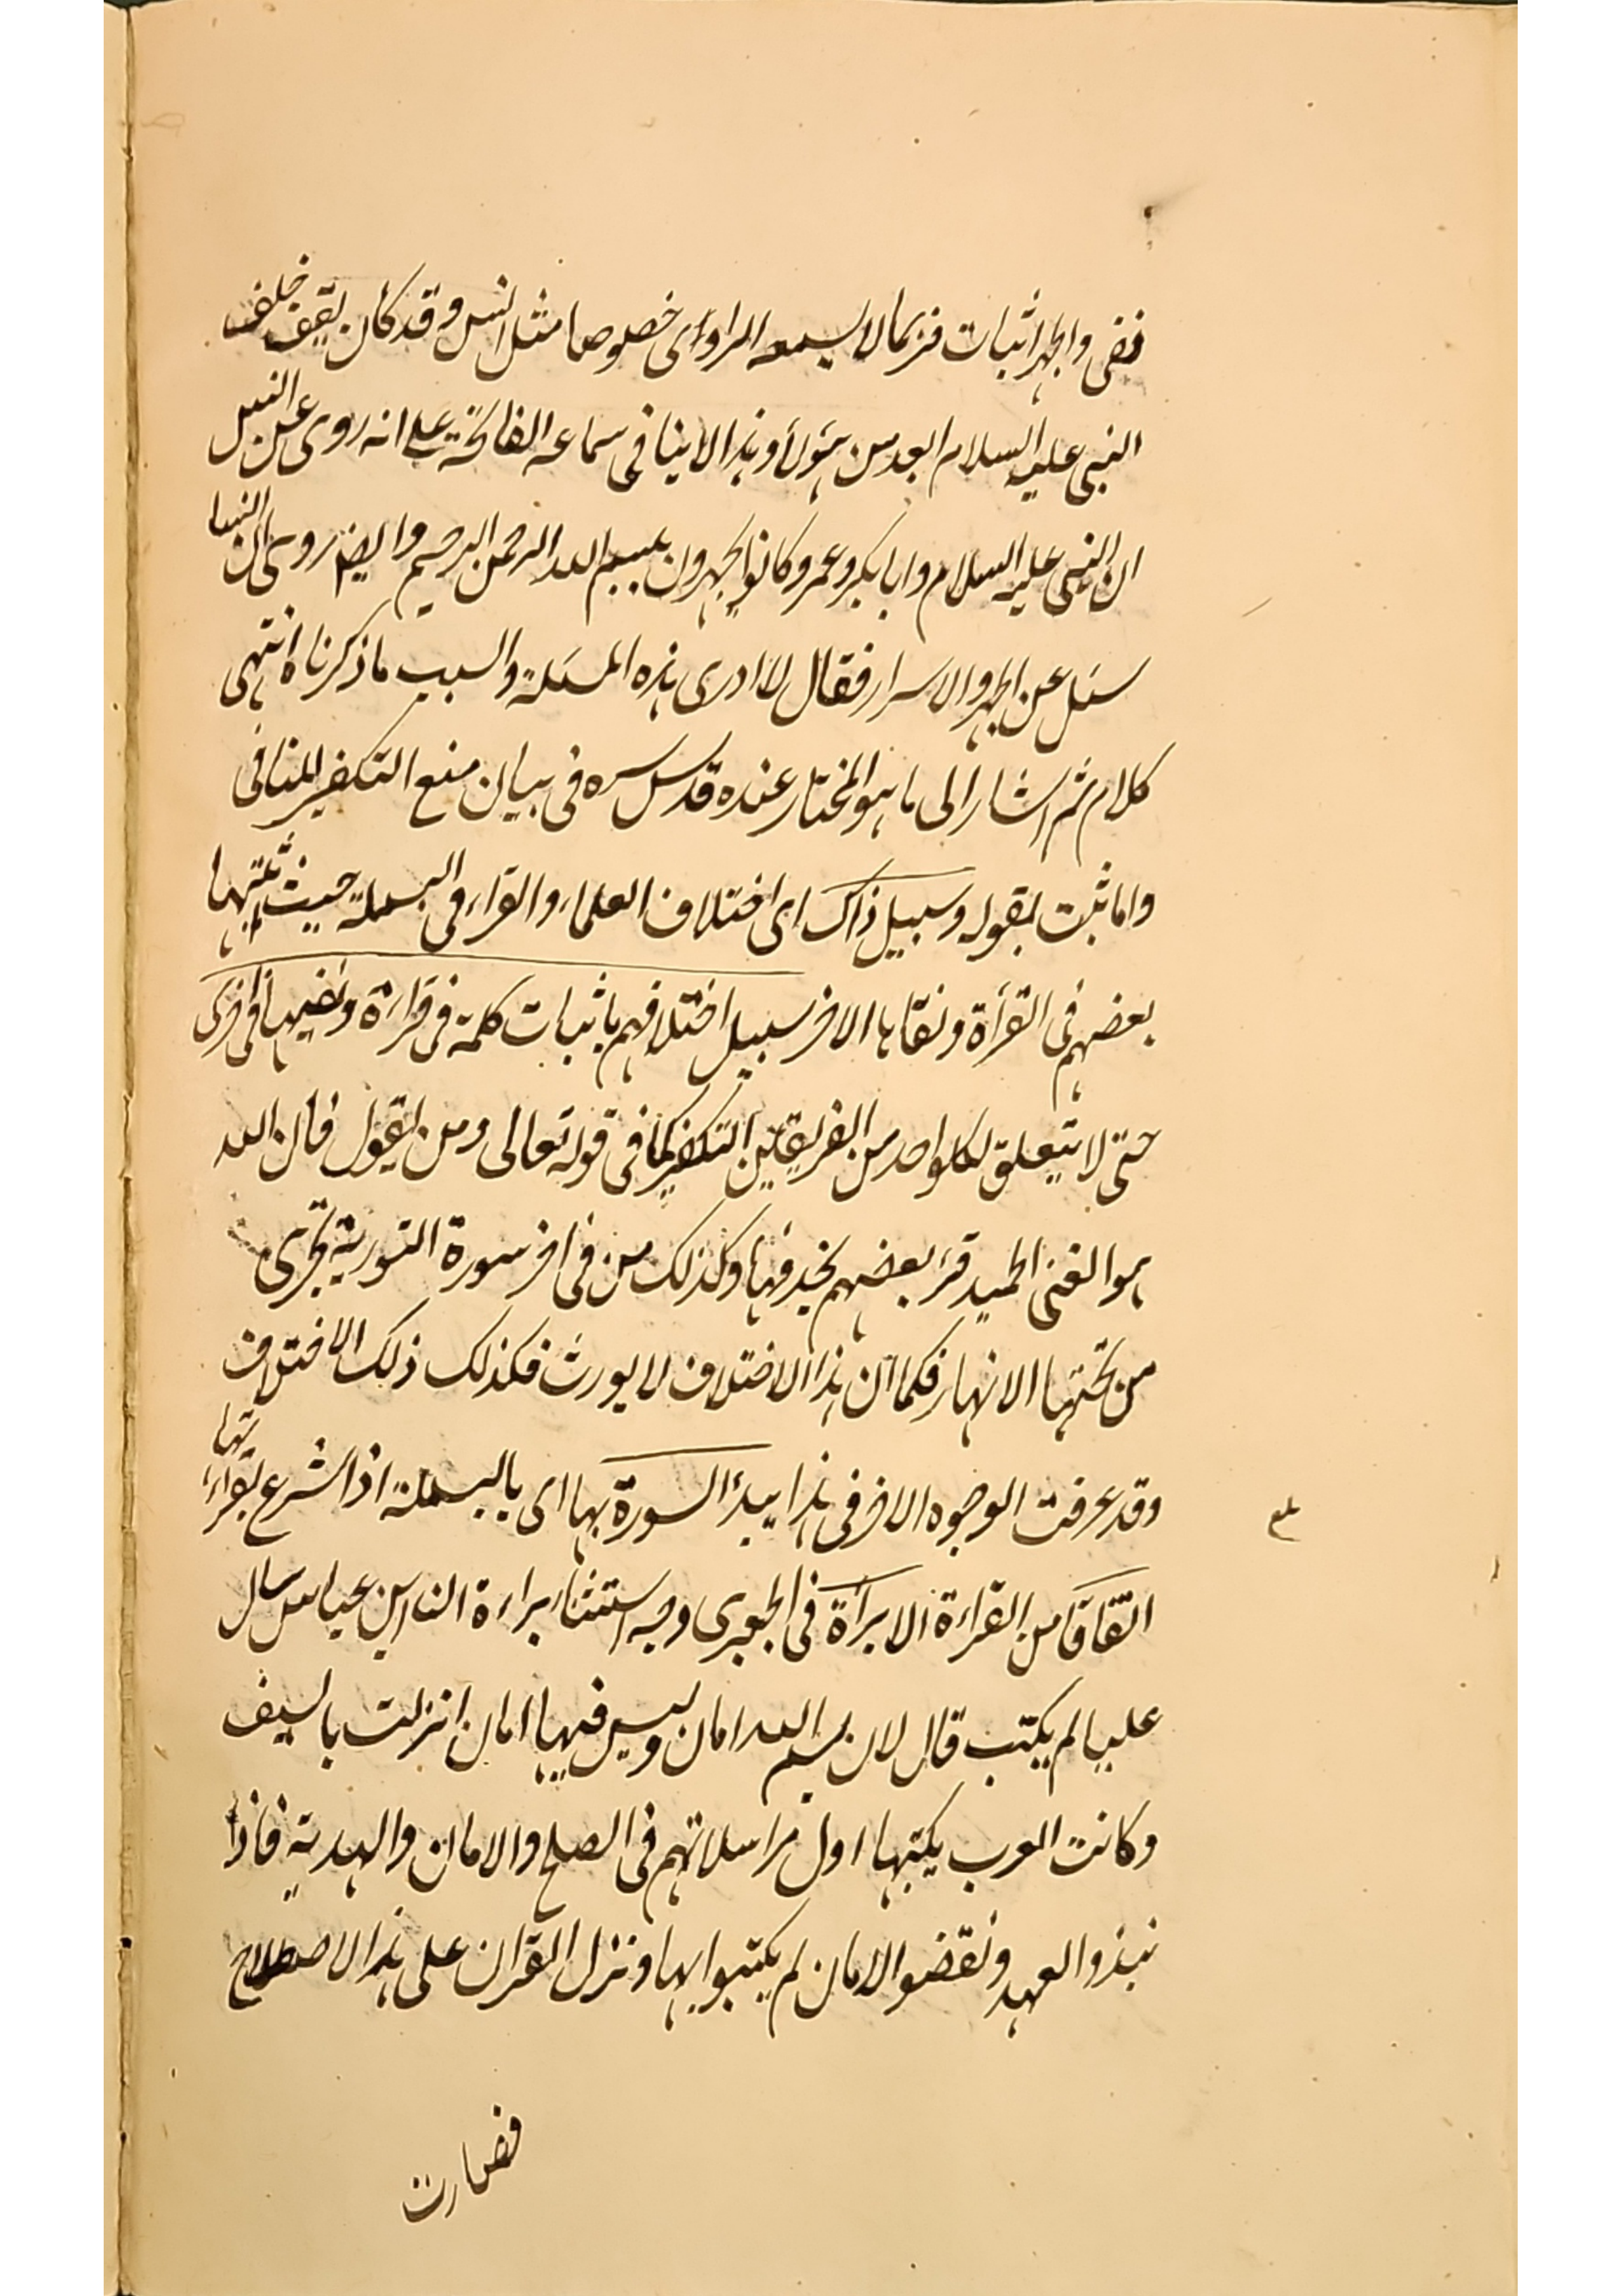 نفى والجهر اثبات فربما لا يسمعه الراوى خصوصا مثل انس وقد كان يقف خلف
النبى عليه السلام ابعد من هؤلاء وهذا لا ينافى سماعه الفاتحة على انه روى عن انس
ان النبى عليه السلام وابا بكر وعمر وكانوا يجهرون ببسم الله الرحمن الرحيم وايضا روى ان انسا
سئل عن الجهر والاسرار فقال لا ادرى هذه المسئلة والسبب ما ذكرناه انتهى
كلام ثم اشار الى ما هو المختار عنده قدس سره فى بيان منع التكفير المنافى
واما ثبت بقوله وسبيل ذاك اى اختلاف العلماء والقراء فى البسملة حيث يثبتها
بعضهم فى القرأة ونفاها الاخر سبيل اختلافهم باثبات كلمة فى قراءة ونفيها فى اخرى
حتى لا يتعلق لكل واحد من الفريقين التكفير كما فى قوله تعالى ومن يتول فان الله
هو الغنى الحميد قرء بعضهم بحذفها وكذلك من فى اخر سورة التوبة تجرى
من تحتها الانهار فكما ان هذا الاختلاف لا يورث فكذلك ذلك الاختلاف
وقد عرفت الوجوه الاخر فى هذا يبدء السورة بها اى بالبسملة اذا شرع بقراءتها
اتفاقا من القراءة الا براءة فى الجعبرى وجه استثناء براءة ان ابن عباس سال
عليا لم لم يكتب قال لان بسم الله امان وليس فيها امان انزلت بالسيف
وكانت العرب يكتبها اول مراسلاتهم فى الصلح والامان والهدية فاذا
نبذوا العهد ونقضوا الامان لم يكتبوا بها ونزل القران على هذا الاصطلاح
فصارت